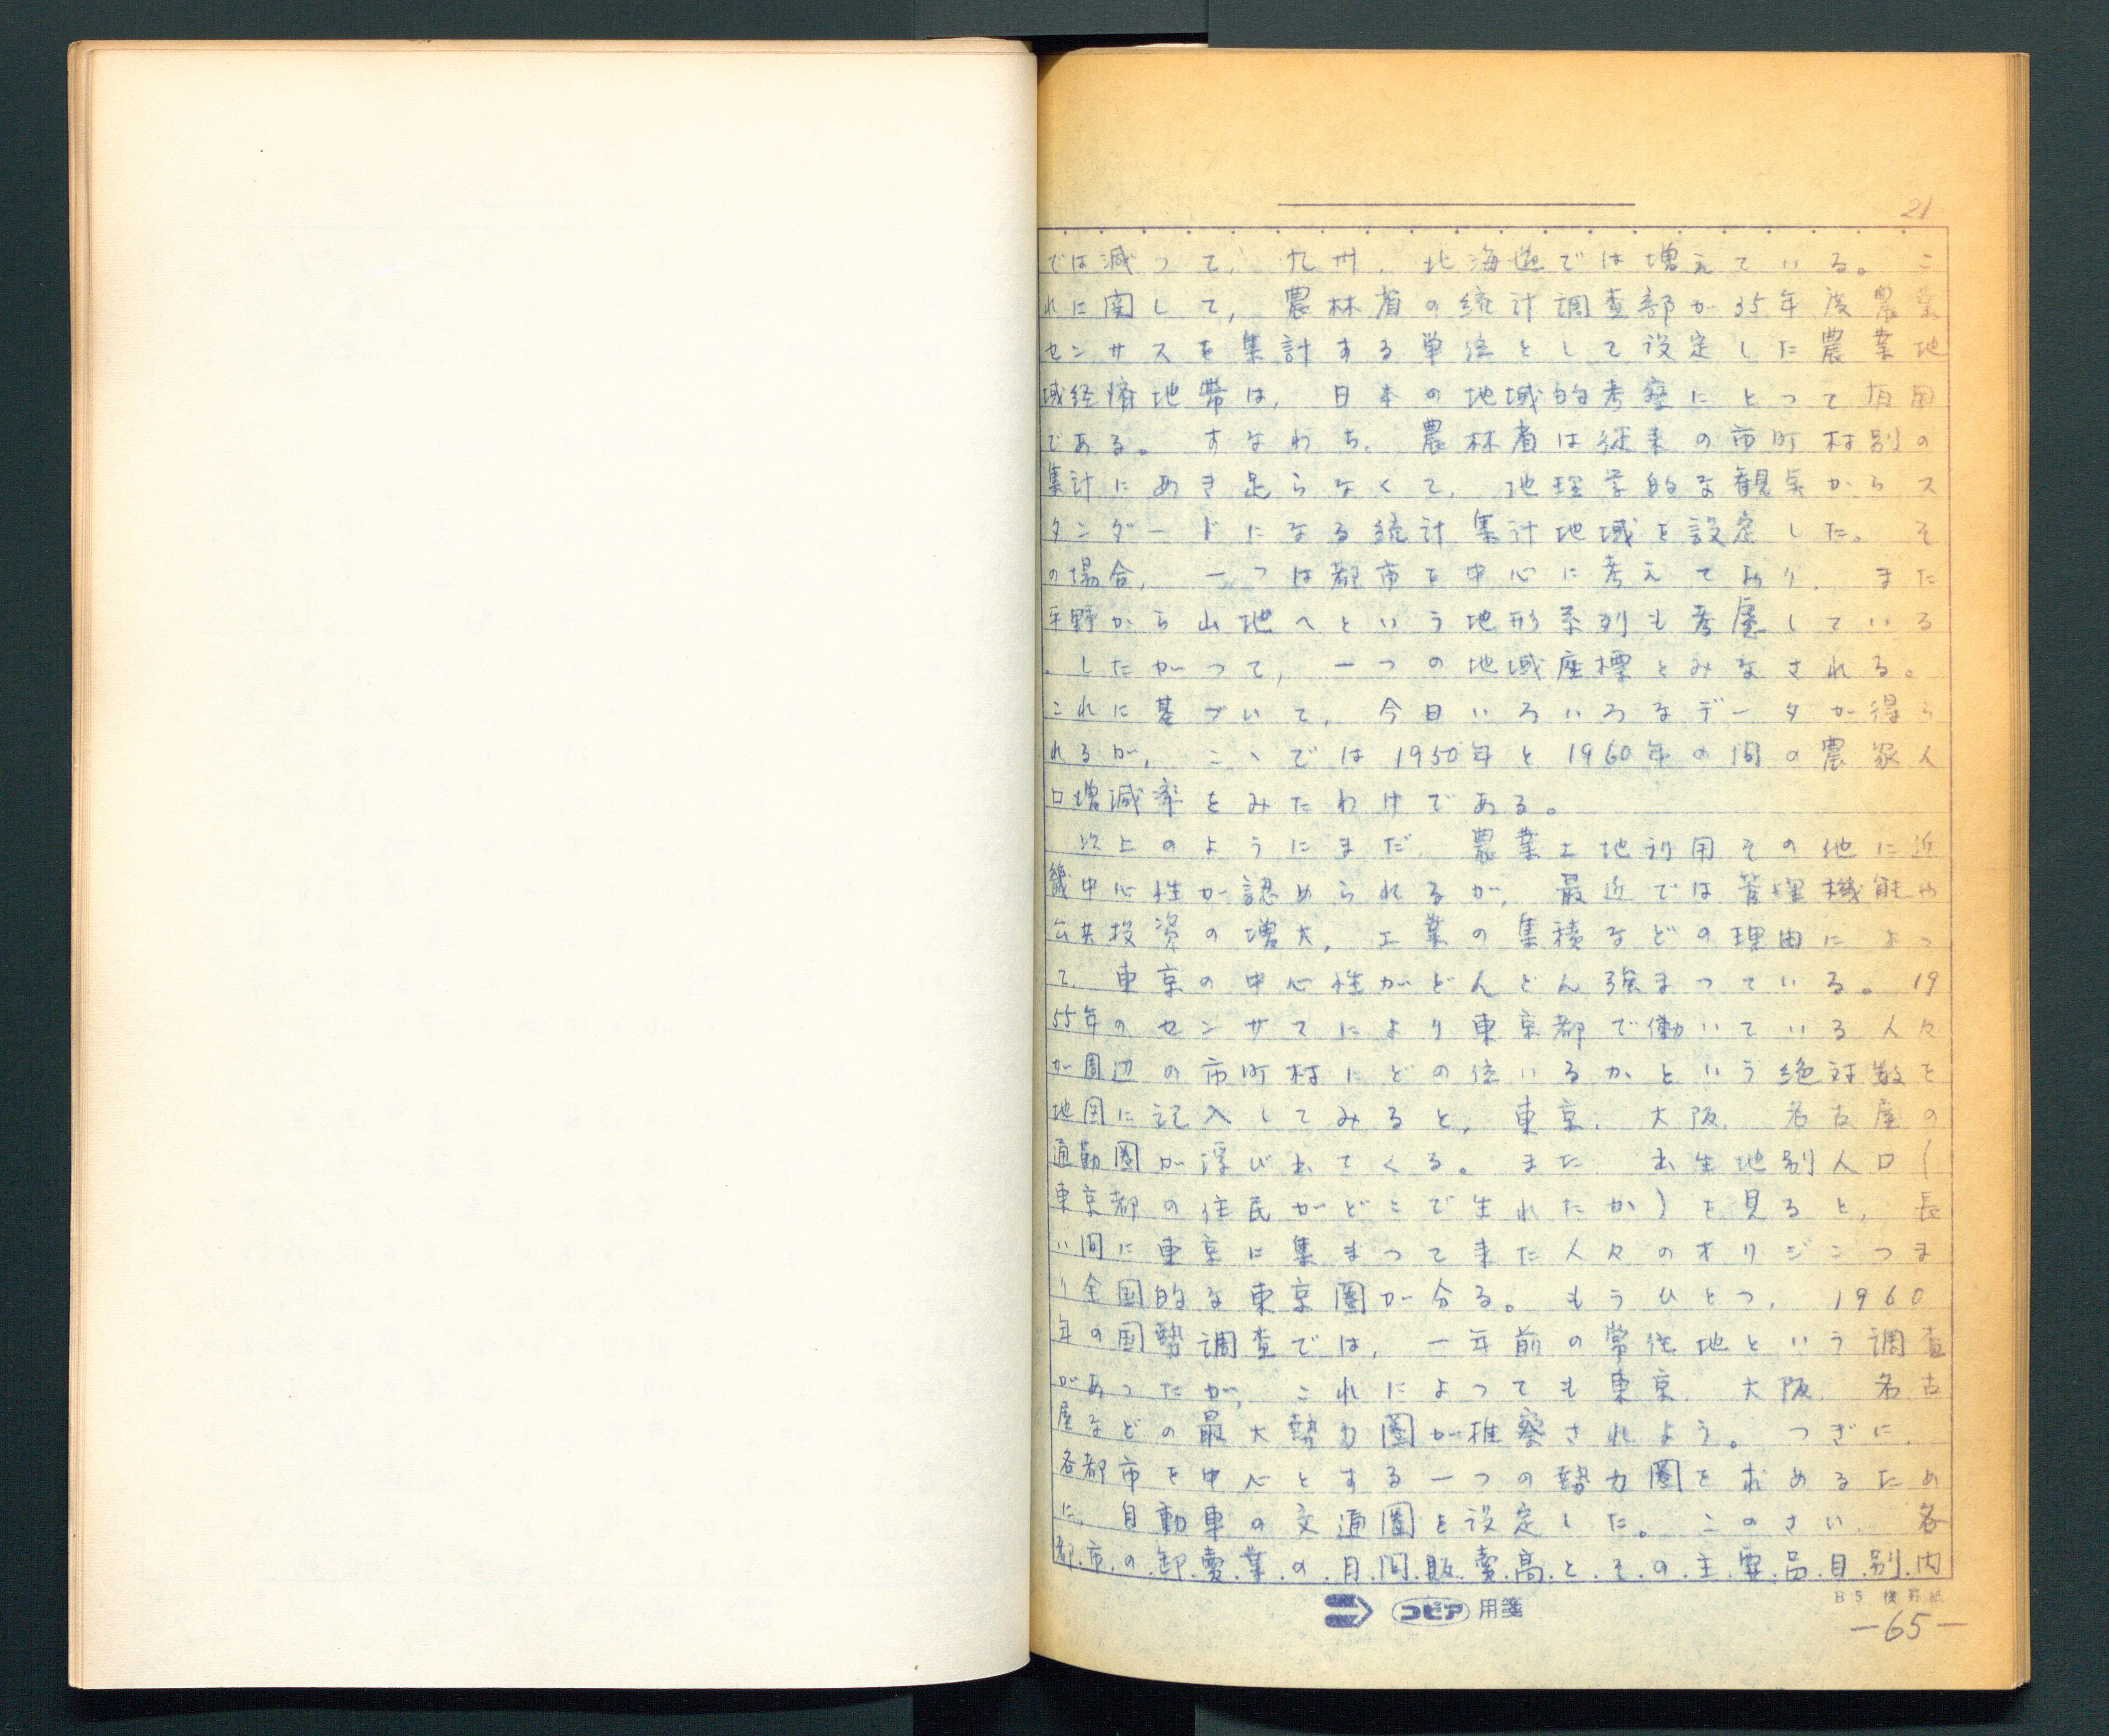 21
では減つて、九州、北海道では増えている。こ
れに関して、農林省の統計調査部が35年度農業
センサスを集計する単位として設定した農業地
域経済地帯は、日本の地域的考察にとつて有用
である。すなわち、農林省は従来の市町村別の
集計にあき足らなくて、地理学的な観点からス
タンダードになる統計集計地域を設定した。そ
の場合、一つは都市を中心に考えており、また
平野から山地へという地形系列も考慮している
。したがつて、一つの地域座標とみなされる。
これに基づいて、今日いろいろなデータが得ら
れるが、こゝでは1950年と1960年の間の農家人
口増減率をみたわけである。
以上のようにまだ、農業土地利用その他に近
畿中心性が認められるが、最近では管理機能や
公共投資の増大、工業の集積などの理由によつ
て、東京の中心性がどんどん強まつている。19
55年のセンサスにより東京都で働いている人々
が周辺の市町村にどの位いるかという絶対数を
地図に記入してみると、東京、大阪、名古屋の
通勤圏が浮び出てくる。また、出生地別人口（
東京都の住民がどこで生れたか）を見ると、長
い間に東京に集まつて来た人々のオリジンつま
り全国的な東京圏が分る。もうひとつ、1960
年の国勢調査では、一年前の常住地という調査
があつたが、これによつても東京、大阪、名古
屋などの最大勢力圏が推察されよう。つぎに、
各都市を中心とする一つの勢力圏を求めるため
に、自動車の交通圏を設定した。このさい、各
都市の卸売業の月間販売高とその主要品目別内
コピア 用箋
B5 横罫紙
—65—